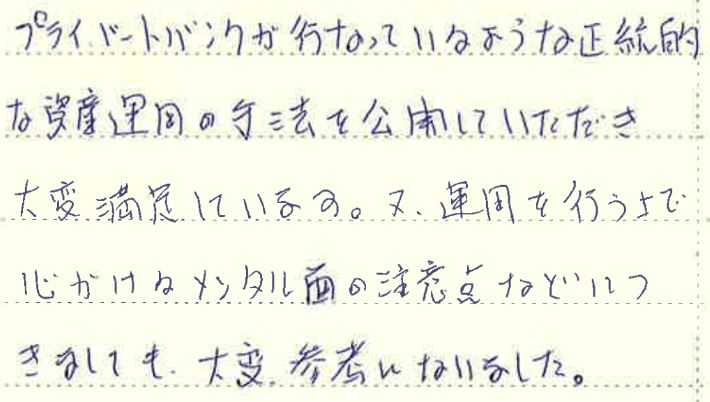 プライバートバンクが行なっているような正統的
な資産運用の手法を公開していただき
大変満足しています。又、運用を行う上で
心がけるメンタル面の注意点などにつ
きましても、大変参考になりました。